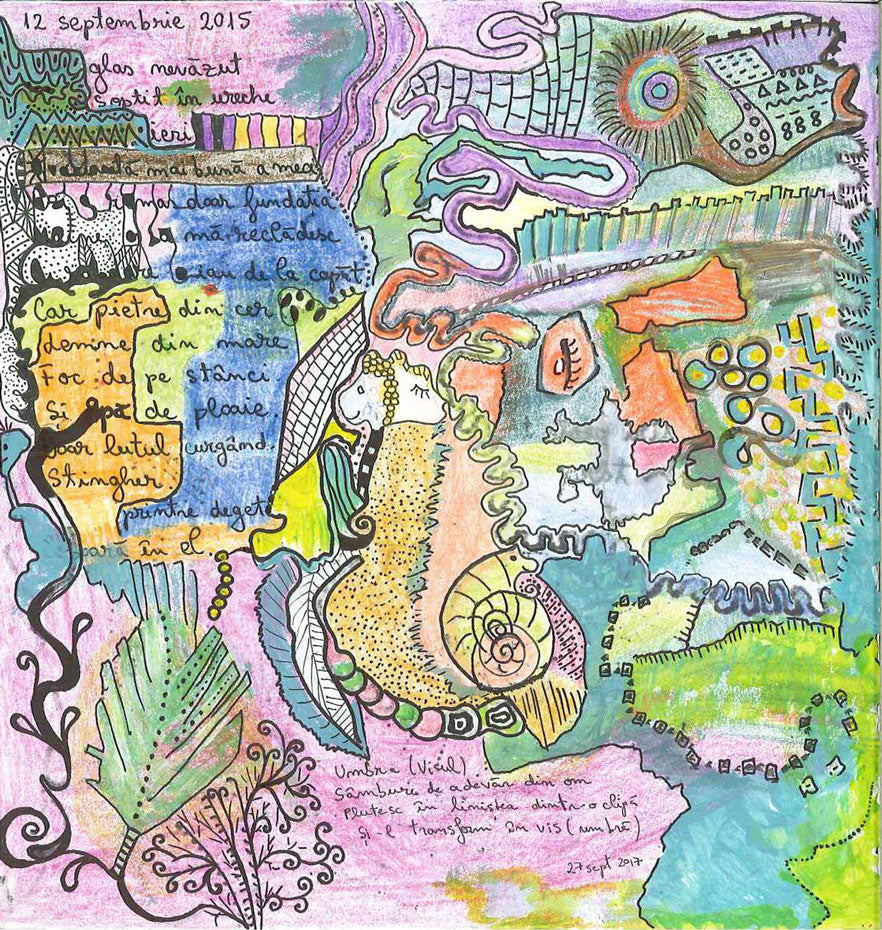 12 septembrie 2015
glas nevăzut
șoptit în ureche
ieri
mai bună a mea
doar fundația
mă reclădesc
iau de la capăt
Car pietre din cer
Lemne din mare
Foc de pe stânci
Și apă de ploaie.
Doar lutul curgând.
Stingher
printre degete
apară în el.
Umbra (Visul)
Sâmbure de adevăr din om
Plutesc în liniștea dintr-o clipă
Și-l transform în vis (umbră)
27 sept 2017